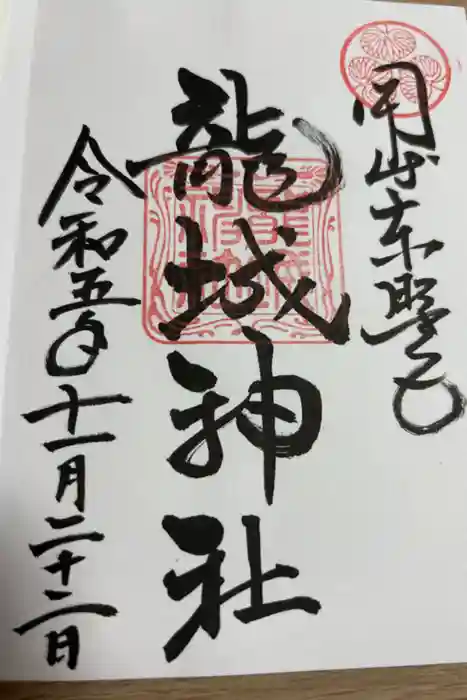 岡崎東照宮
龍城神社
令和五年十一月二十二日